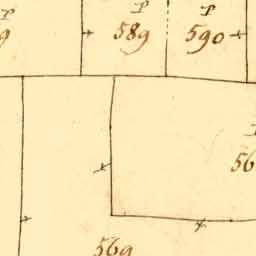 P P P
9 589 590
P
56
569